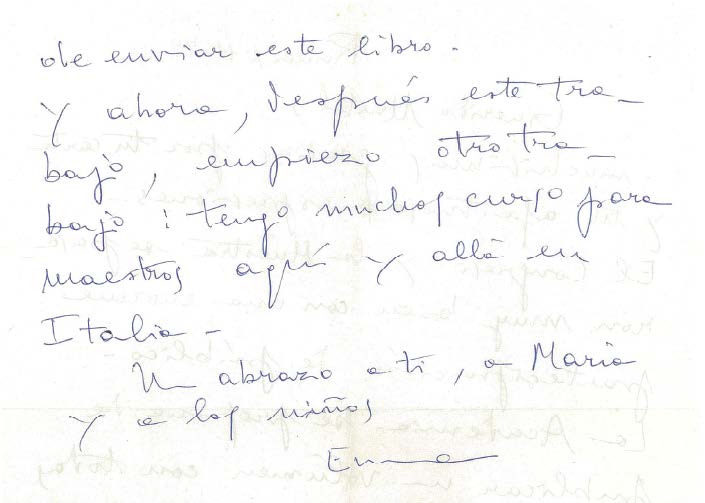 de enviar este libro.
Y ahora, después este tra_
bajo, empiezo otro tra_
bajo: tengo muchos curso para
maestros aquí y allá en
Italia -
Un abrazo a ti, a Maria
y a los niños
Emma